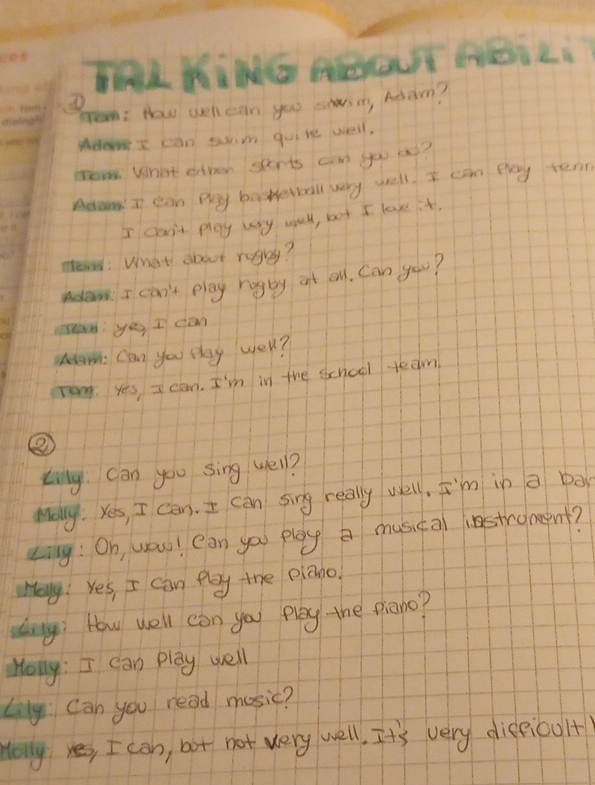 TALKING ABOUT ABILIT
①
Tom: How well can you swim, Adam?
Adam: I can swim quite well.
Tom: What other sports can you do?
Adam: I can play basketball very well. I can play tenn
I can't play very well, but I love it.
Tom: What about rugby?
Adam: I can't play rugby at all. Can you?
Tom: yes, I can
Adam: Can you play well?
Tom: Yes, I can. I'm in the school team.
②
Lily: Can you sing well?
Molly: Yes, I can. I can sing really well. I'm in a ban
Lily: Oh, wow! Can you play a musical instrument?
Molly: Yes, I can play the piano.
Lily: How well can you play the piano?
Molly: I can play well
Lily: Can you read music?
Molly: yes, I can, but not very well. It's very difficult!